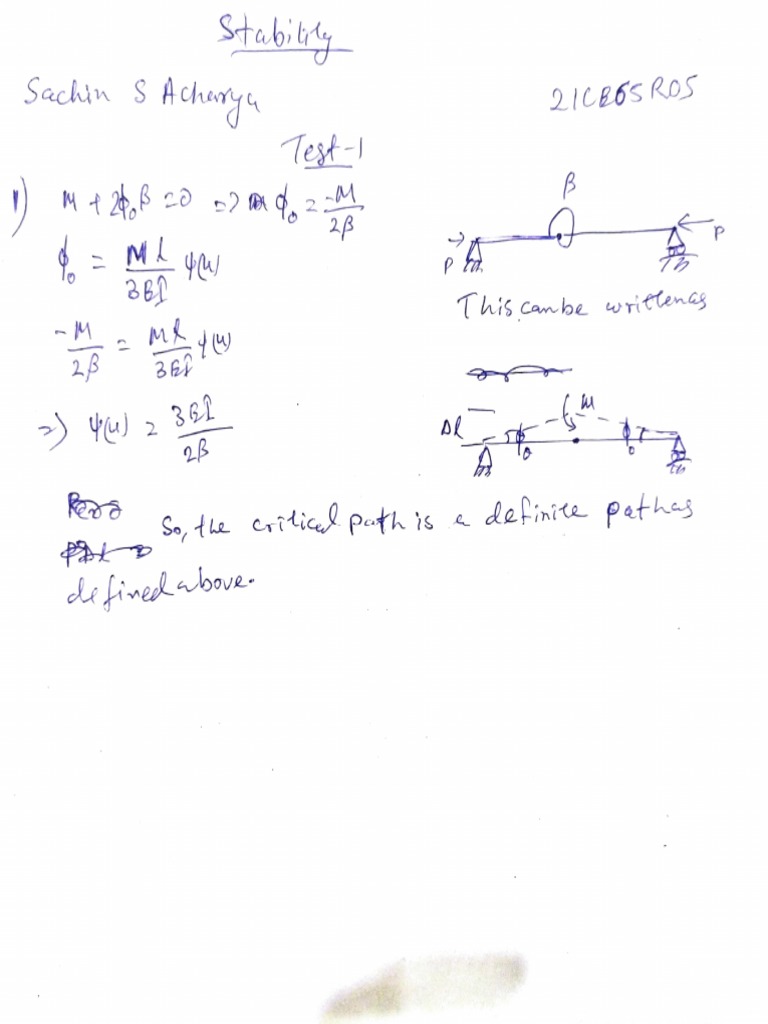 Stability
Sachin S Acharya
21CE65R05
Test-1
1) M + 2ϕ₀β = 0 => ϕ₀ = -M/2β
ϕ₀ = Ml/3EI ψ(u)
-M/2β = Ml/3EI ψ(u)
=> ψ(u) = 3EI/2β
β
P
P
This can be written as
Δl
M
ϕ₀
ϕ₀
So, the critical path is a definite path as
defined above.